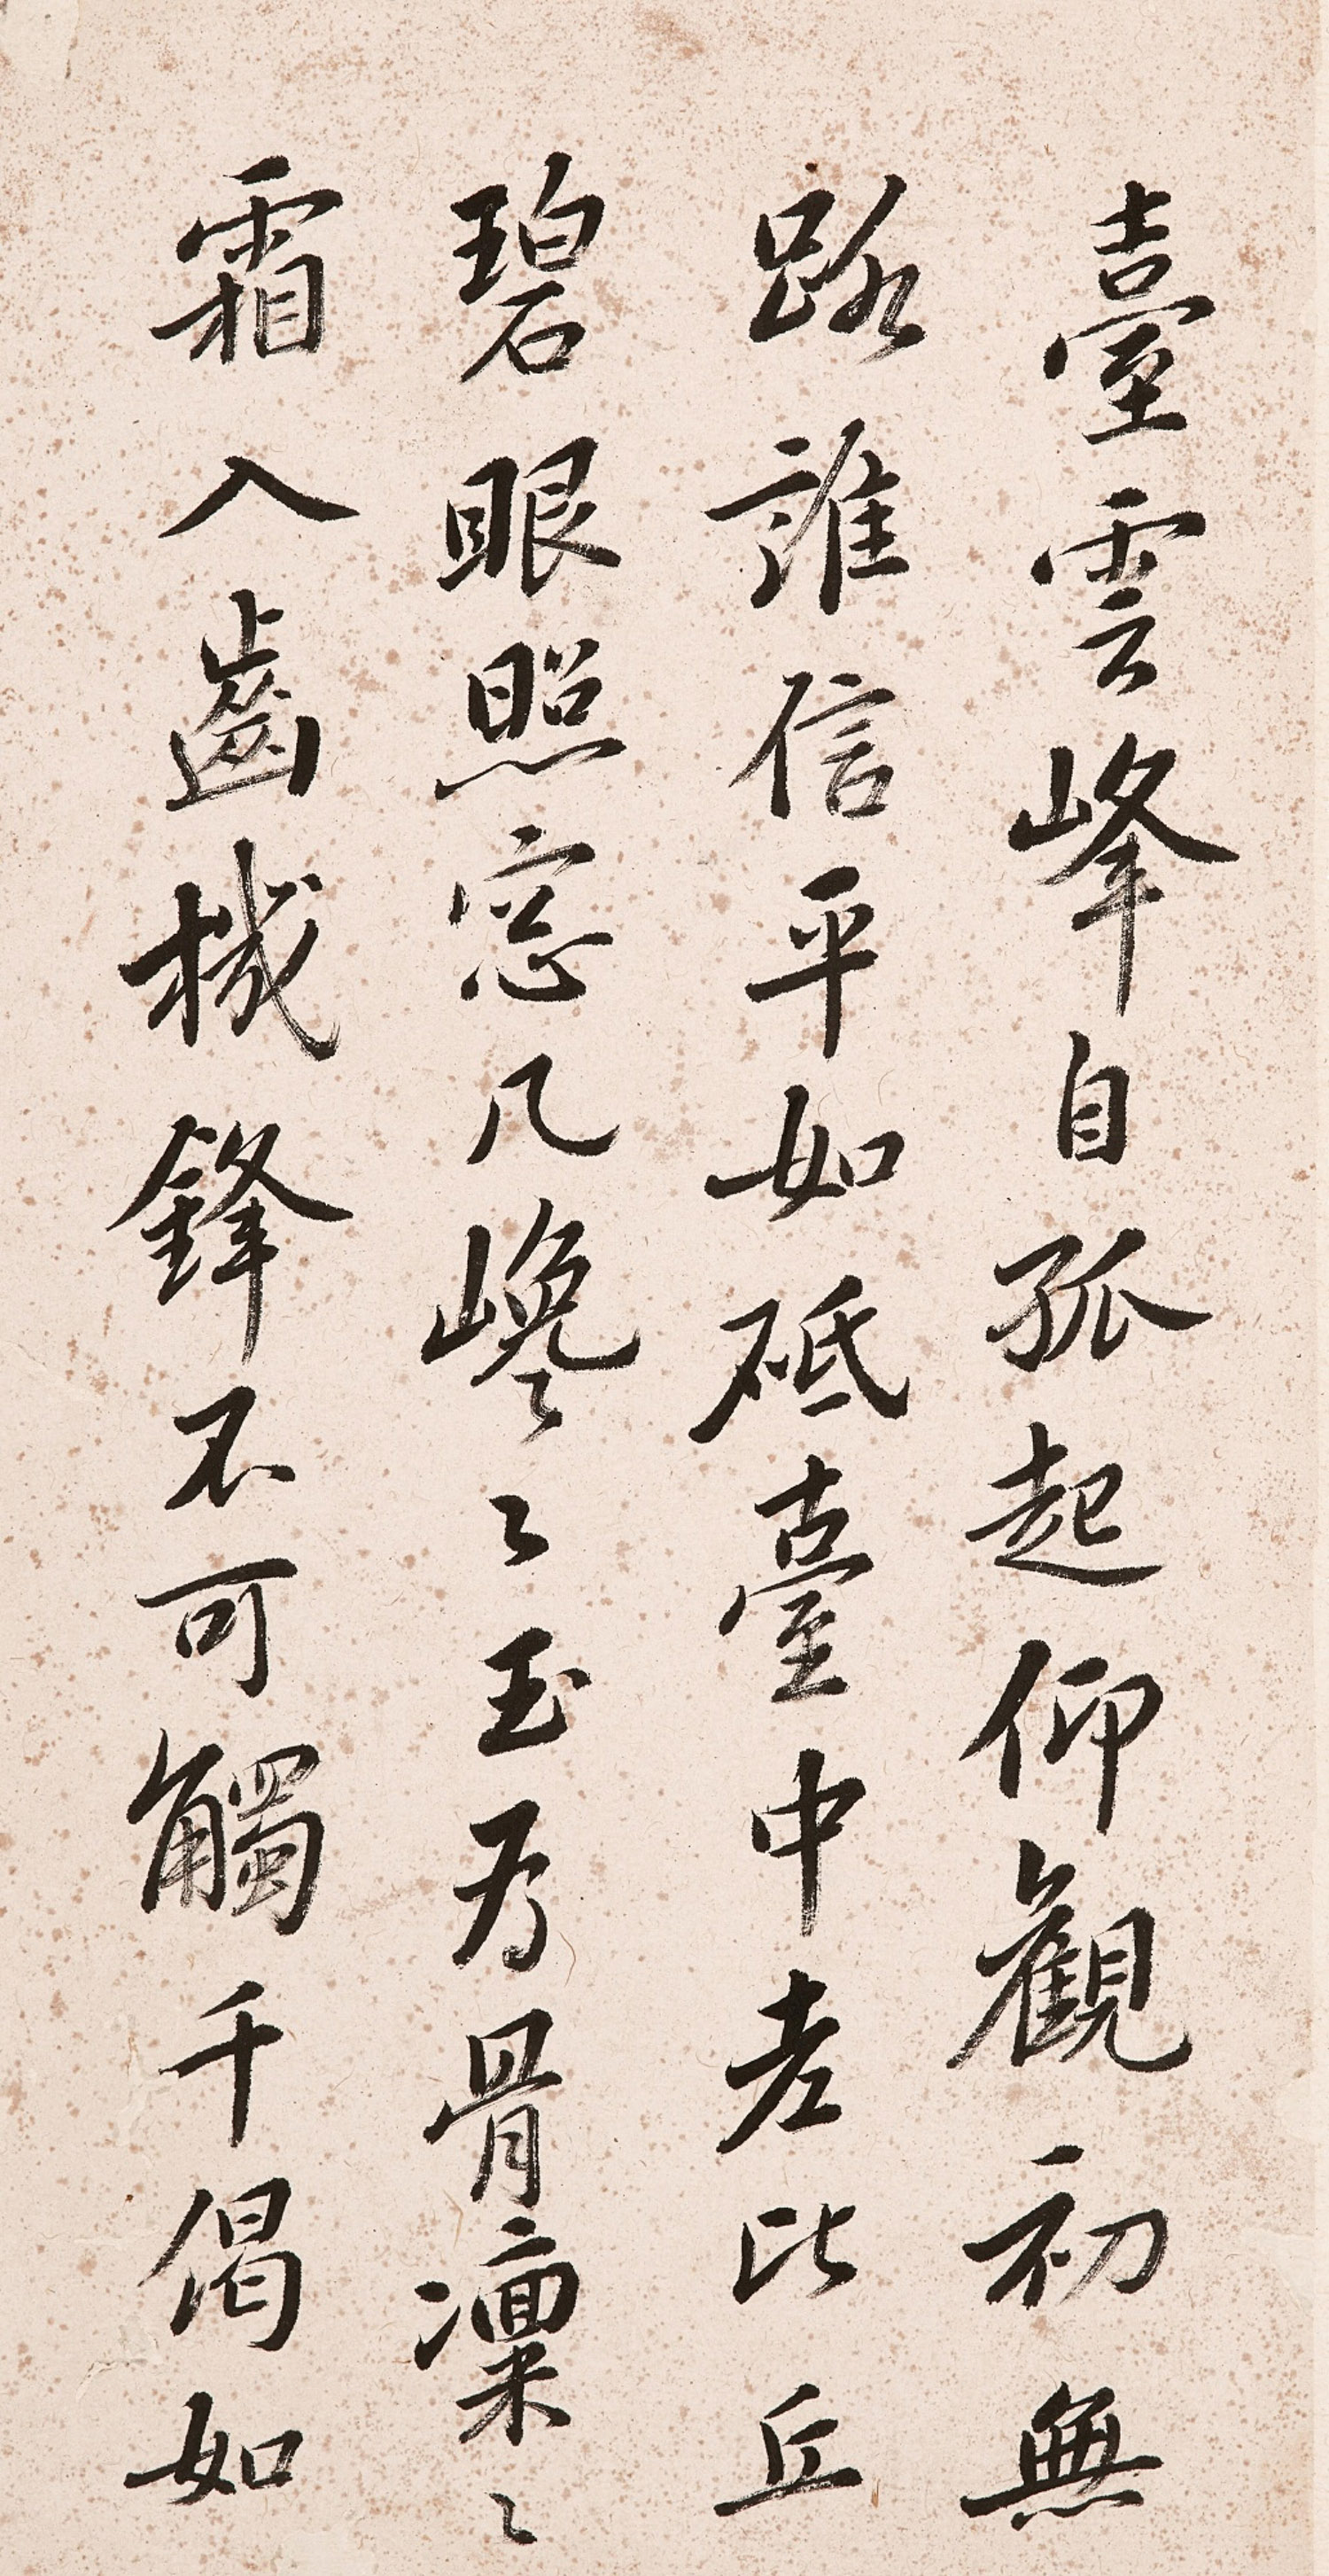 臺雲峰自孤起仰觀初無
路誰信平如砥臺中老比丘
碧眼照窓几巉〻玉為骨凜〻
霜入齒機鋒不可觸千偈如